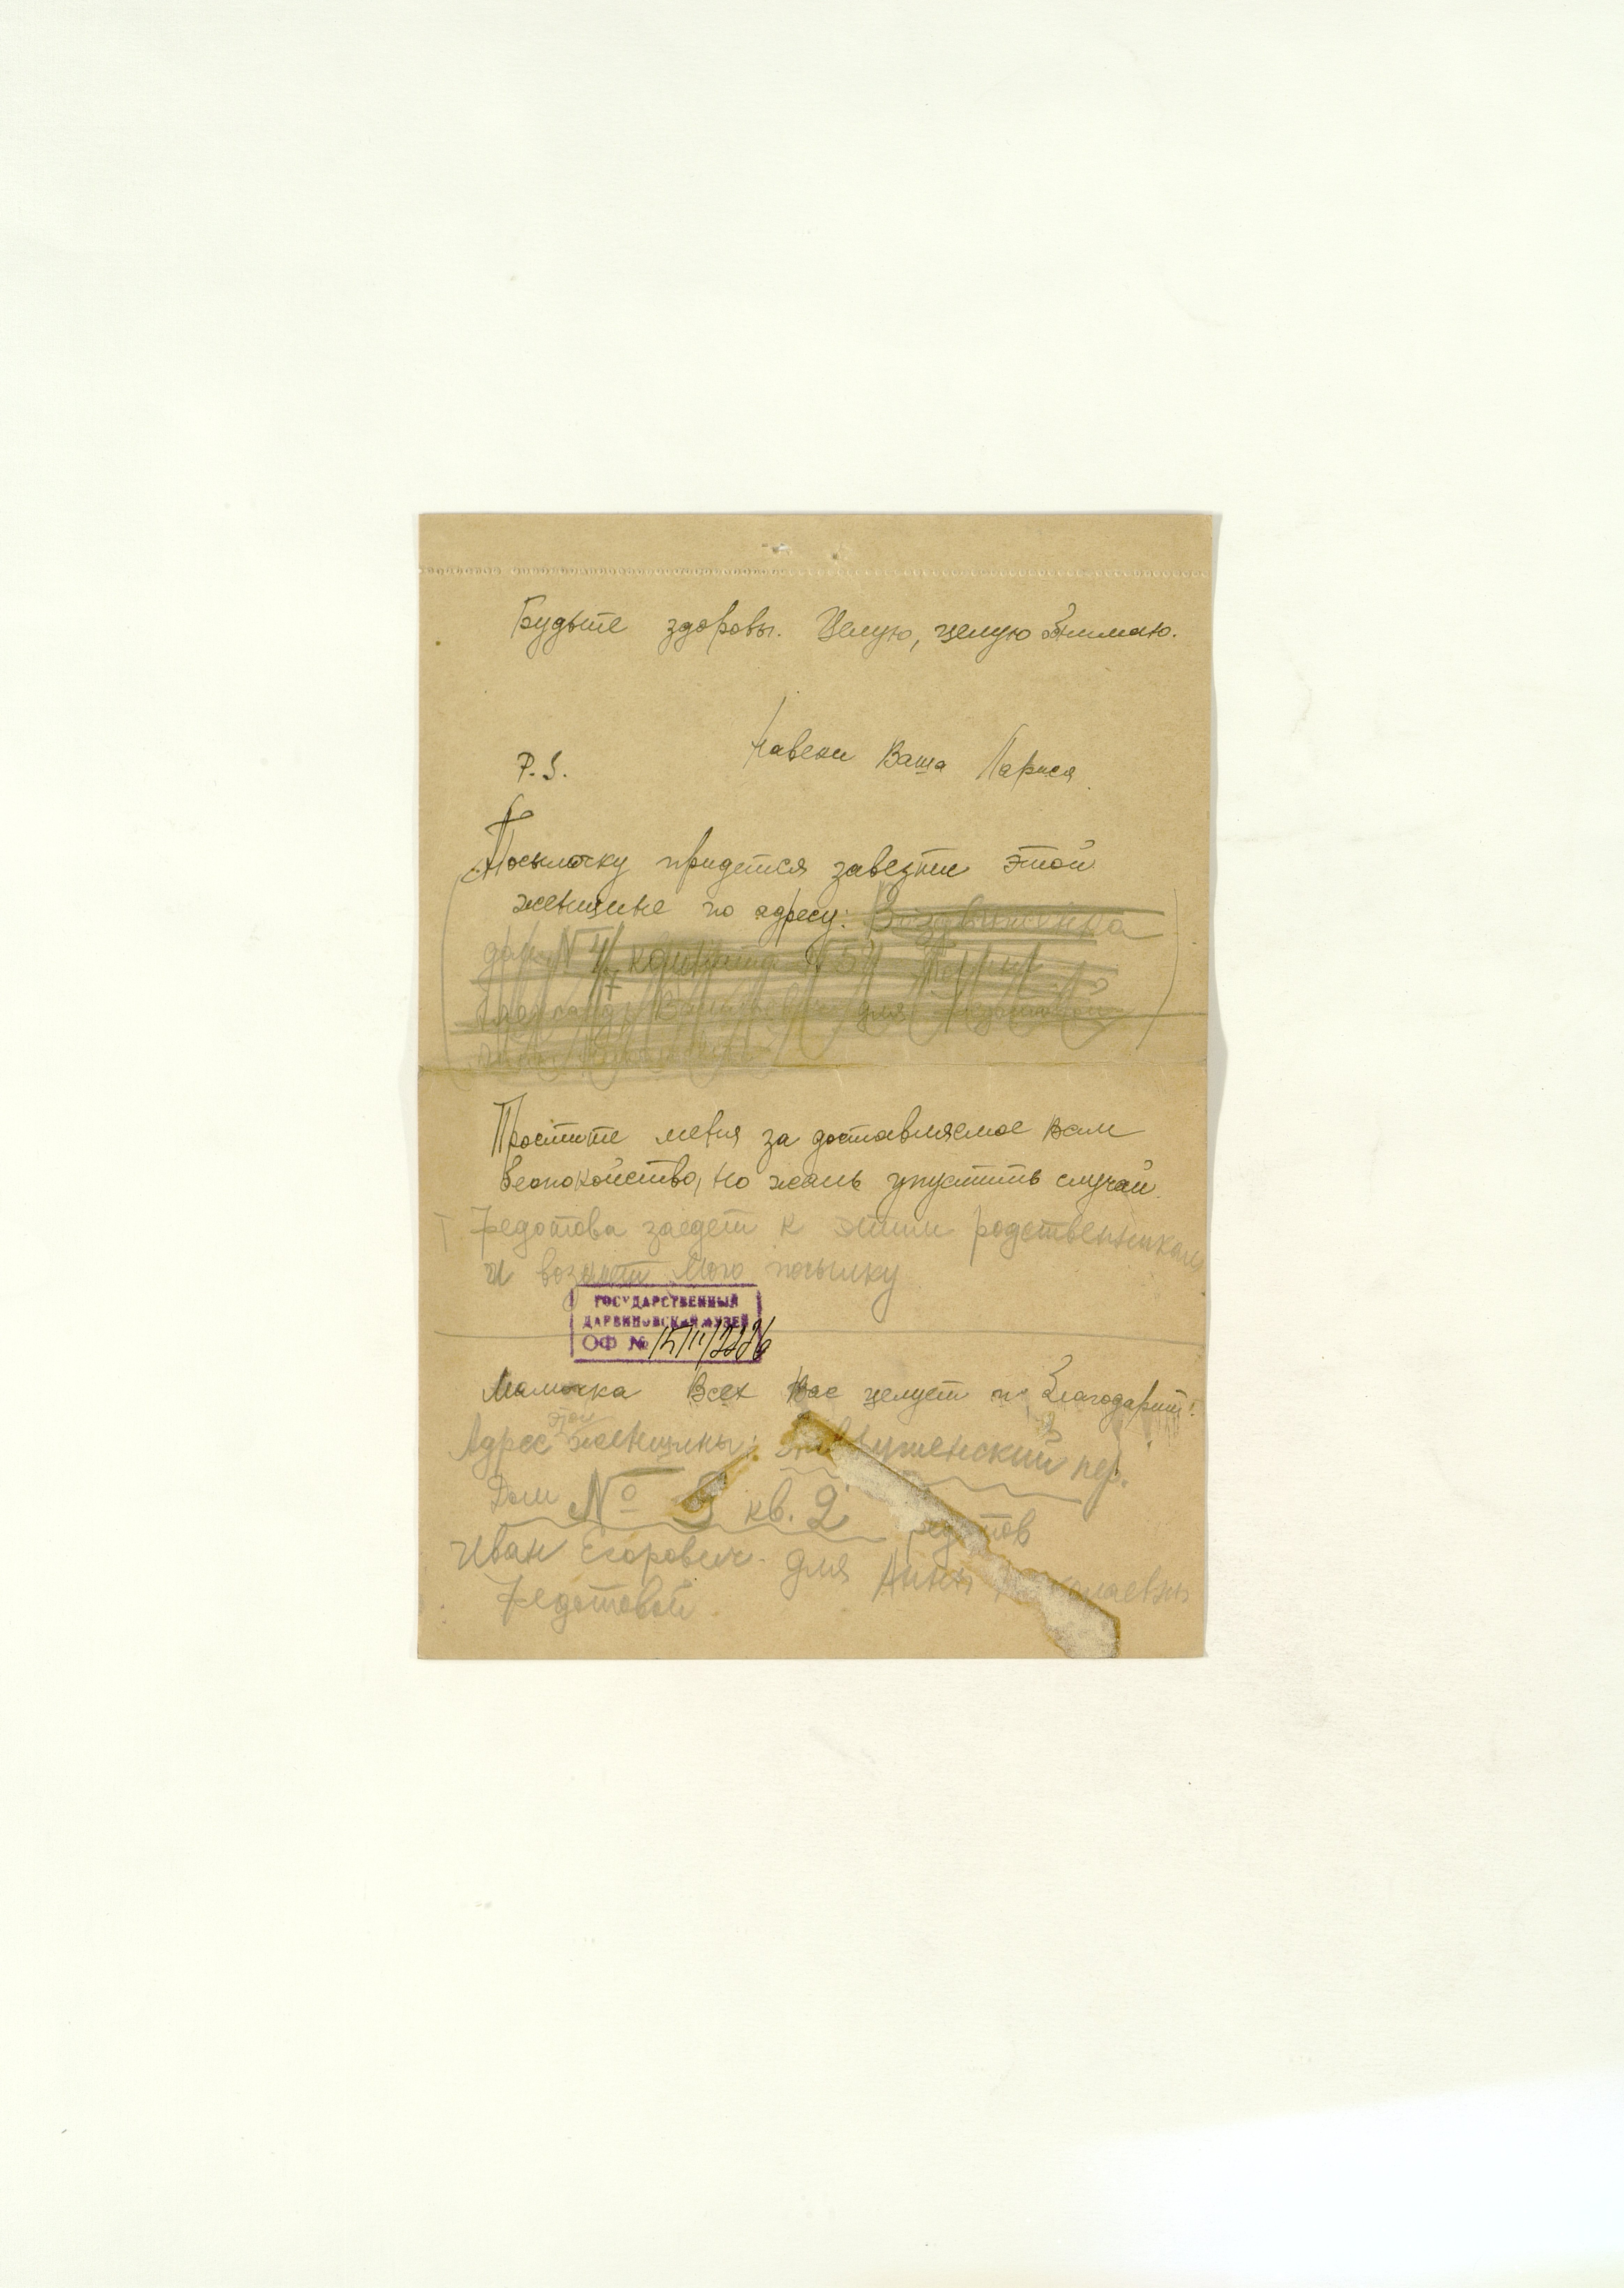 Будьте здоровы. Целую, целую обнимаю.
Навеки Ваша Лариса
P.S.
Посылочку придется завезти этой
женщине по адресу: Воздвиженка
дом № 4/7 комната № 54
для Федотовой
Простите меня за доставляемое Вам
беспокойство, но жаль упустить случай.
Федотова заедет к этим родственникам
и возьмет мою посылку
ГОСУДАРСТВЕННЫЙ
ДАРВИНОВСКИЙ МУЗЕЙ
ОФ №
Мамочка Всех Вас целует и благодарит!
Адрес этой женщины: пер.
Дом № 3 кв. 2 Федотов
Иван Егорович для Анны Николаевны
Федотовой.